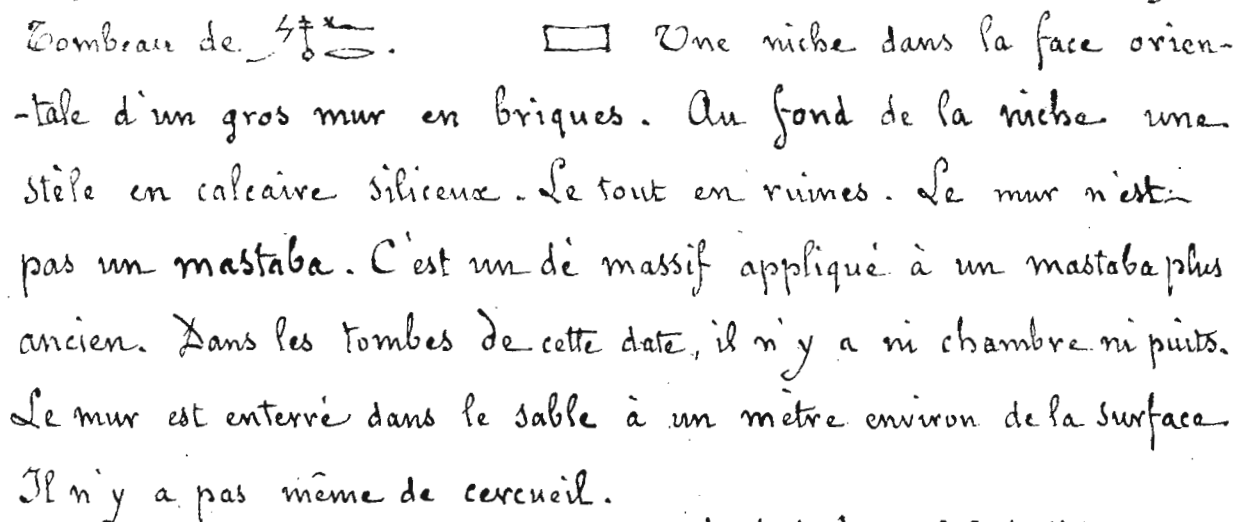 Tombeau de . Une niche dans la face orien-
-tale d'un gros mur en briques. Au fond de la niche une
stèle en calcaire siliceux. Le tout en ruines. Le mur n'est
pas un mastaba. C'est un dé massif appliqué à un mastaba plus
ancien. Dans les tombes de cette date, il n'y a ni chambre ni puits.
Le mur est enterré dans le sable à un mètre environ de la surface.
Il n'y a pas même de cercueil.